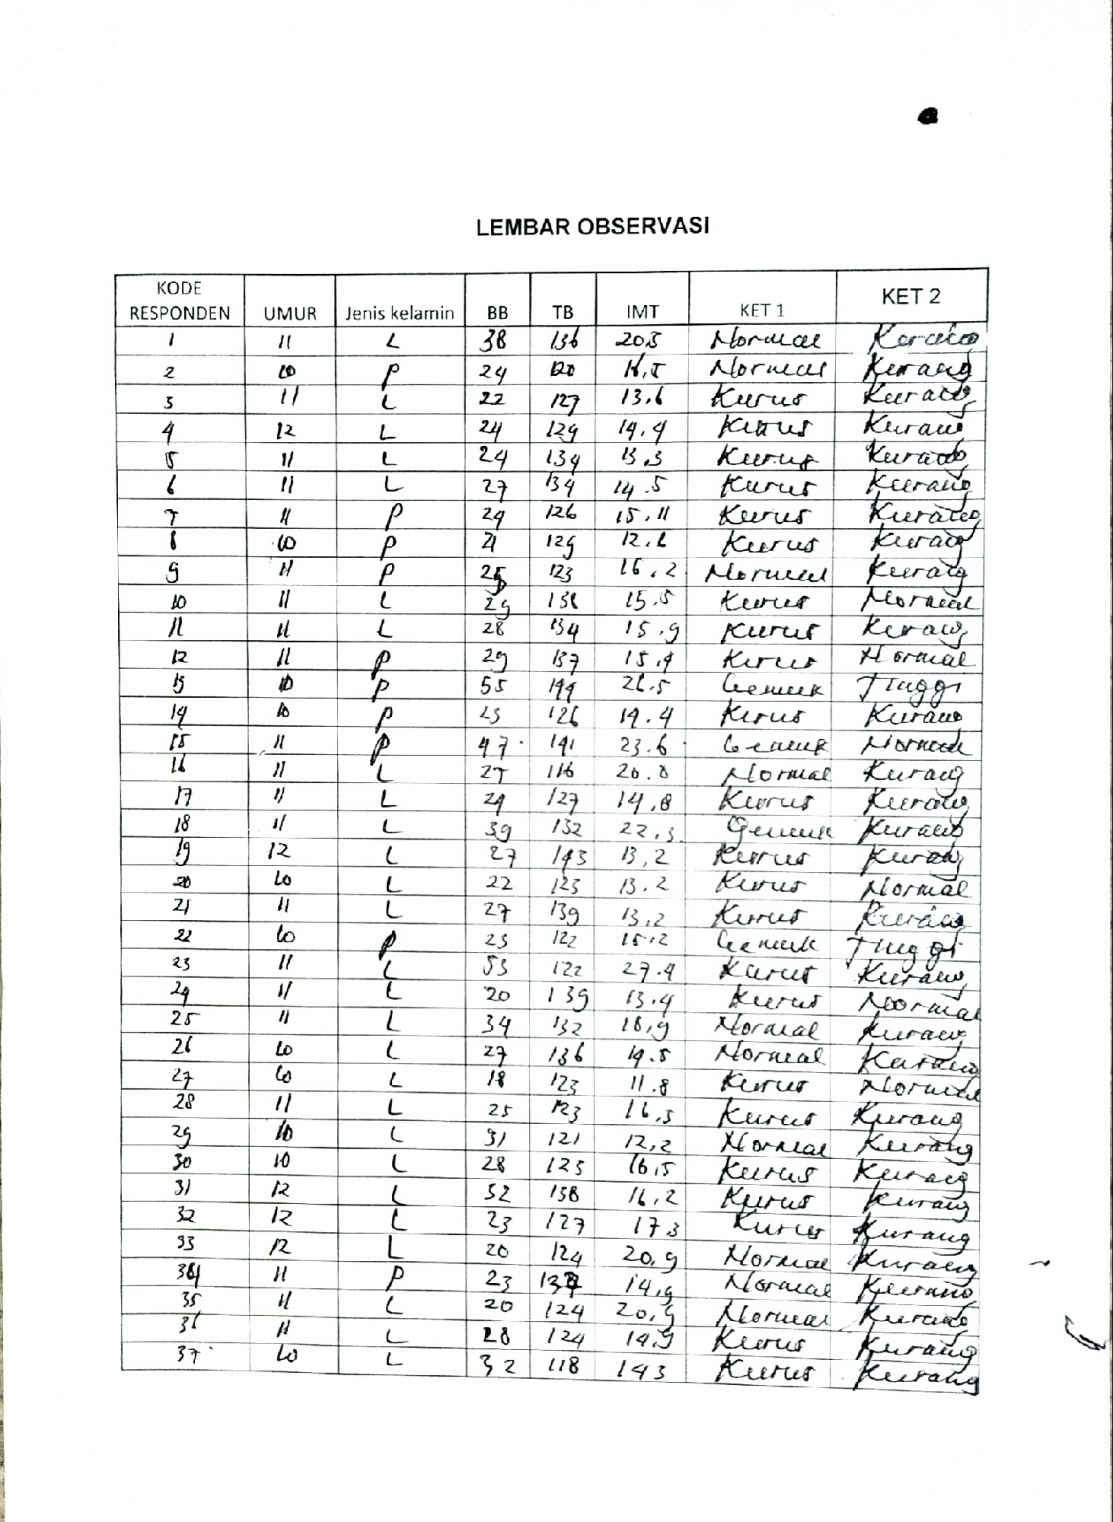 LEMBAR OBSERVASI
KODE RESPONDEN UMUR Jenis kelamin BB TB IMT KET 1 KET 2
1 11 L 38 136 20.5 Normal Kurang
2 10 P 24 120 16,5 Normal Kurang
3 11 L 22 127 13.6 Kurus Kurang
4 12 L 24 129 14.4 Kurus Kurang
5 11 L 24 134 13.3 Kurus Kurang
6 11 L 27 134 14.5 Kurus Kurang
7 11 P 24 126 15.11 Kurus Kurang
8 10 P 21 129 12.6 Kurus Kurang
9 11 P 25 123 16.2 Normal Kurang
10 11 L 29 138 15.5 Kurus Normal
11 11 L 28 134 15.9 Kurus Kurang
12 11 P 29 137 15.4 Kurus Normal
13 10 P 55 144 26.5 Gemuk Tinggi
14 10 P 23 126 14.4 Kurus Kurang
15 11 P 47 141 23.6 Gemuk Normal
16 11 L 27 116 20.0 Normal Kurang
17 11 L 24 127 14,8 Kurus Kurang
18 11 L 39 132 22,3 Gemuk Kurang
19 12 L 27 143 13,2 Kurus Kurang
20 10 L 22 123 13.2 Kurus Normal
21 11 L 27 139 13,2 Kurus Kurang
22 10 P 23 122 15.2 Gemuk Tinggi
23 11 L 53 122 27.4 Kurus Kurang
24 11 L 20 139 13.4 Kurus Normal
25 11 L 34 132 18,9 Normal Kurang
26 10 L 27 136 19.5 Normal Kurang
27 10 L 18 123 11.8 Kurus Normal
28 11 L 25 123 16,3 Kurus Kurang
29 10 L 31 121 12,2 Normal Kurang
30 10 L 28 123 16,5 Kurus Kurang
31 12 L 32 138 16,2 Kurus Kurang
32 12 L 23 127 17.3 Kurus Kurang
33 12 L 20 124 20,9 Normal Kurang
34 11 P 23 14,9 Normal Kurang
35 11 L 20 124 20,9 Normal Kurang
36 11 L 28 124 14,9 Kurus Kurang
37 10 L 32 118 143 Kurus Kurang